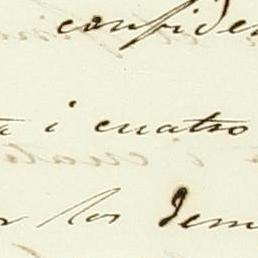 confiden
a i cuatro
r los Dem